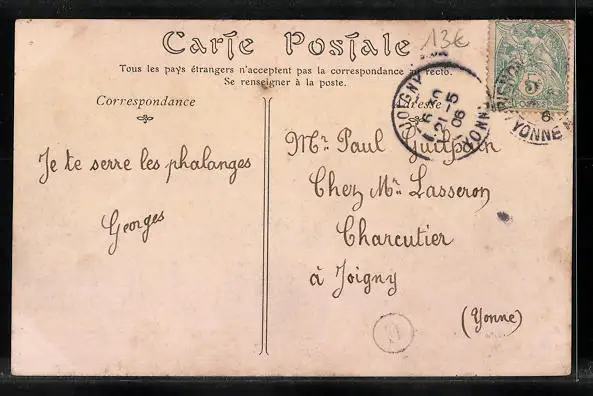 Carte Postale
13€
Tous les pays étrangers n'acceptent pas la correspondance au recto.
Se renseigner à la poste.
Correspondance
Adresse
JOIGNY
21-5
06
YONNE
5
YONNE
Je te serre les phalanges
Georges
Mr. Paul
Chez Mr. Lasseron
Charcutier
à Joigny
(Yonne)